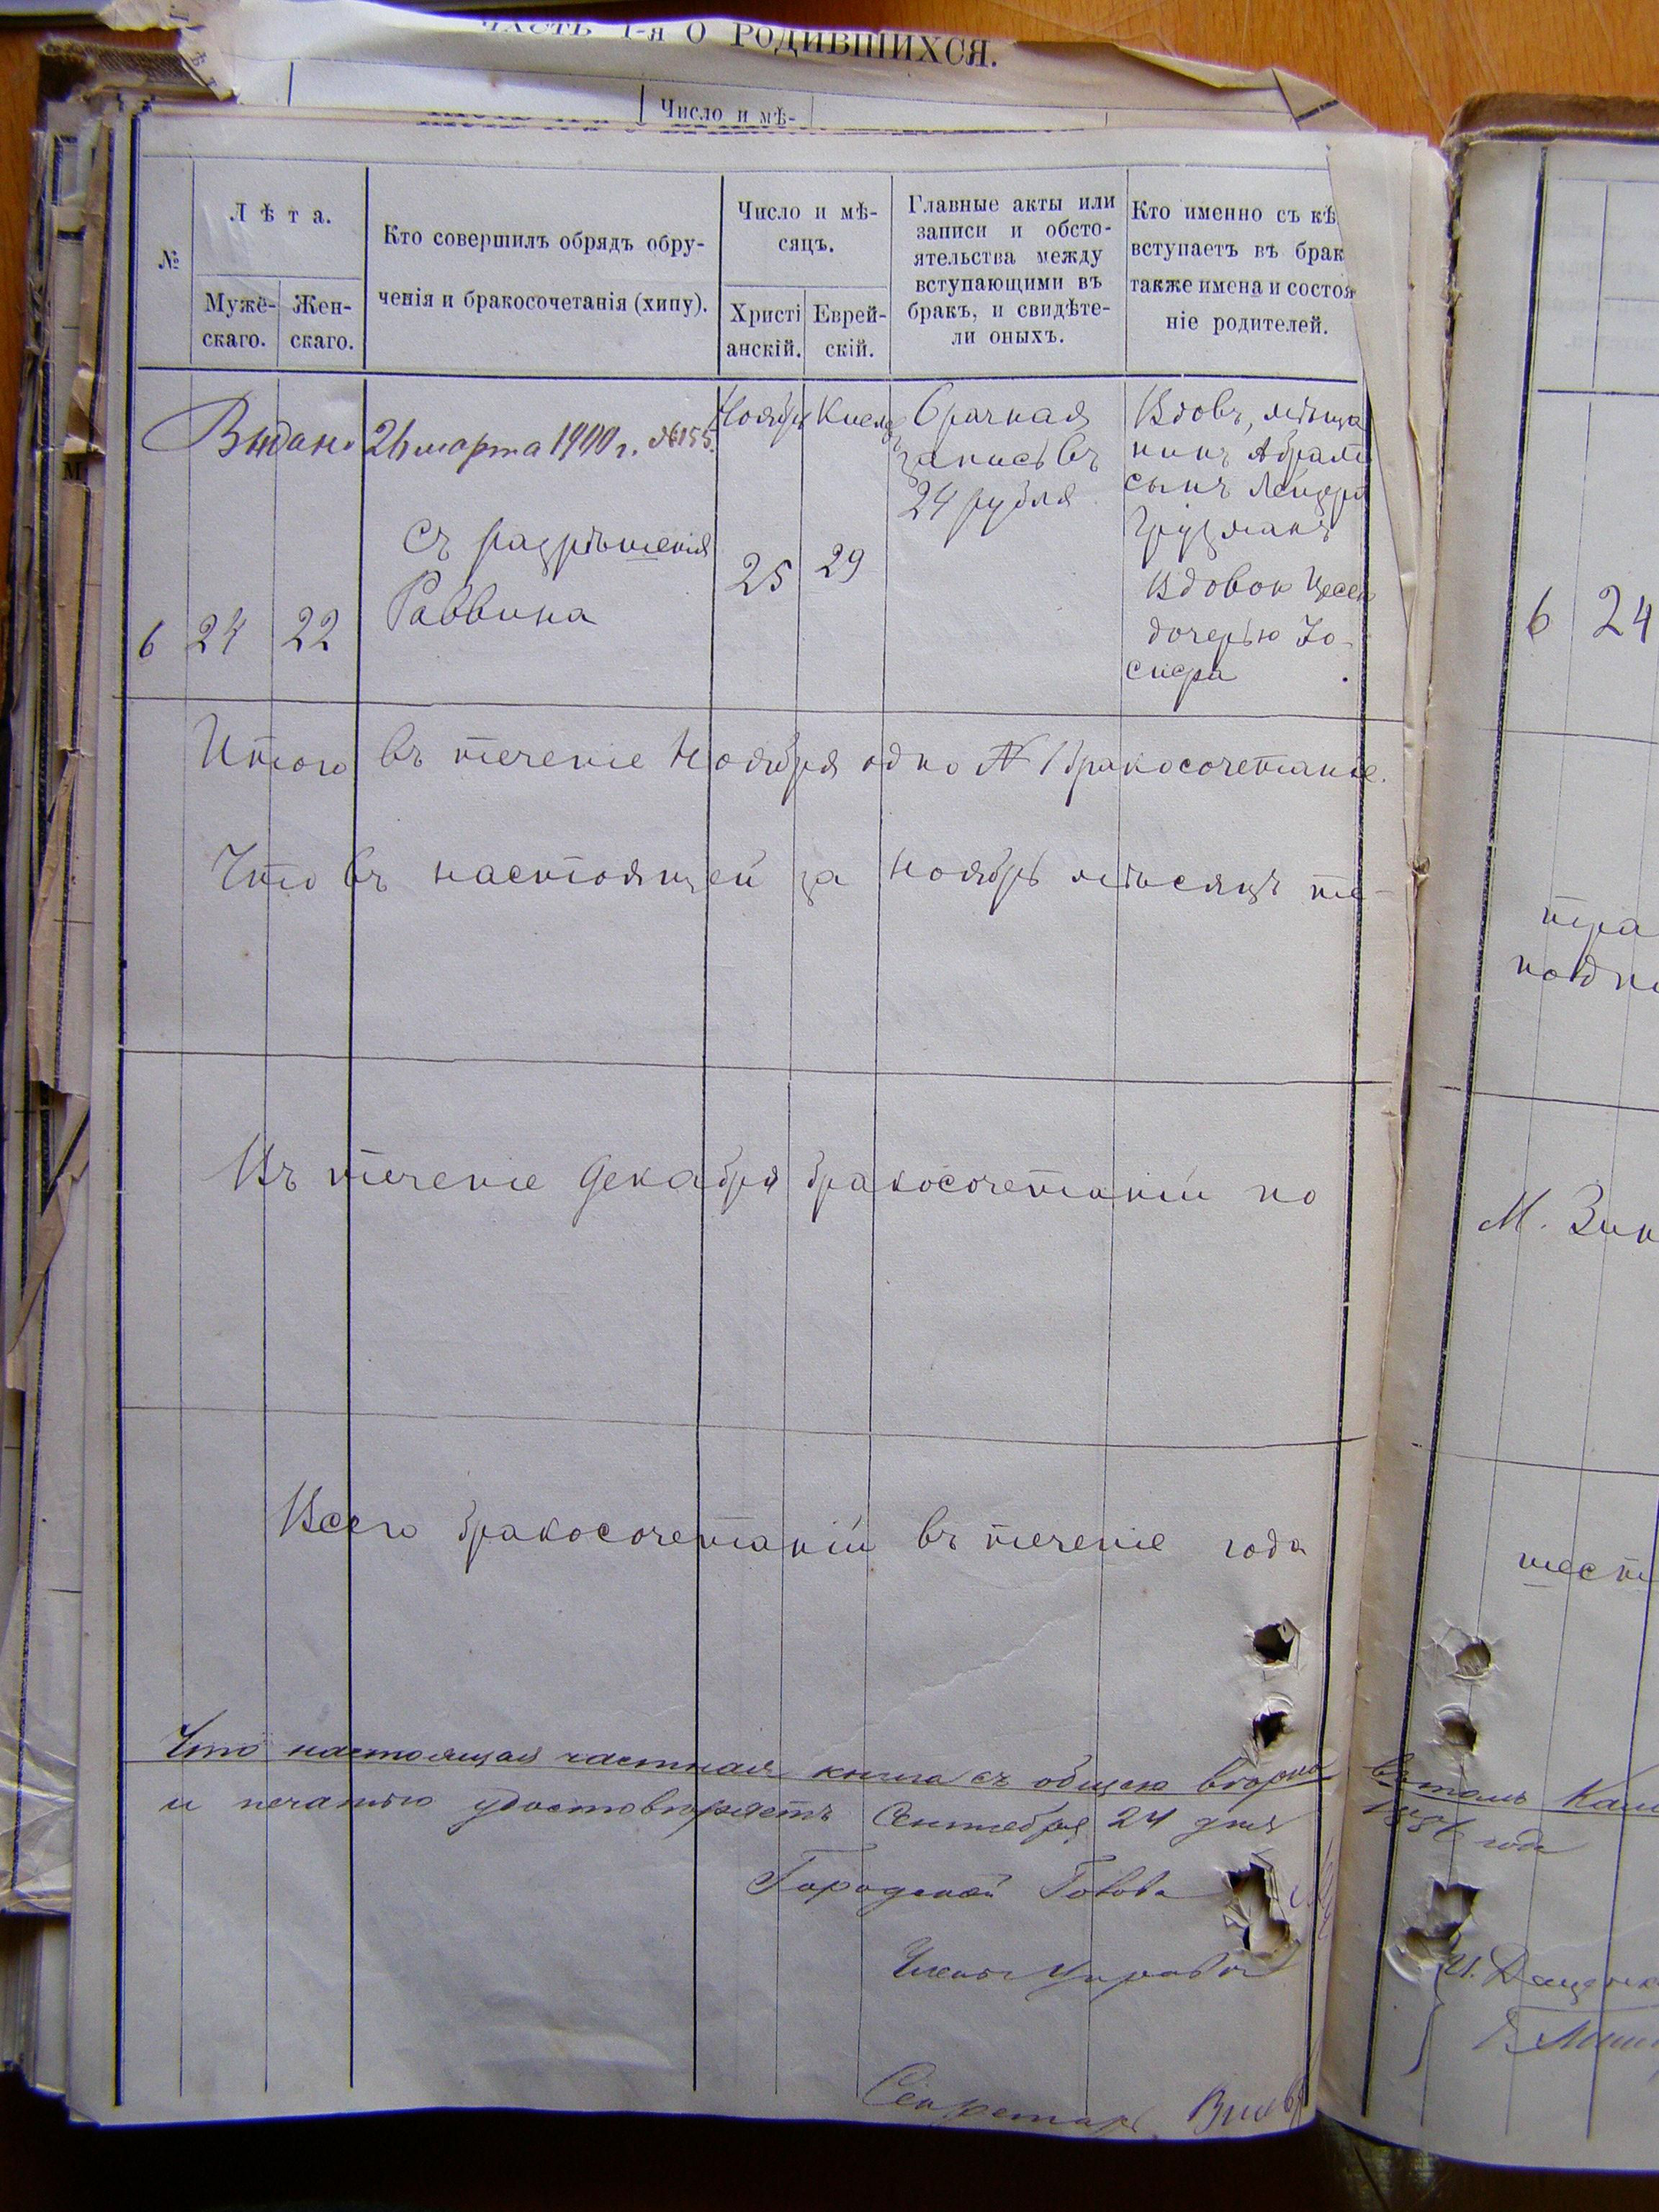 ЧАСТЬ I-я О РОДИВШИХСЯ.
Число и мѣ-
№
Лѣта.
Мужескаго.
Женскаго.
Кто совершилъ обрядъ обру-
ченія и бракосочетанія (хипу).
Число и мѣ-
сяцъ.
Христі
анскій.
Еврей-
скій.
Главные акты или
записи и обсто-
ятельства между
вступающими въ
бракъ, и свидѣте-
ли оныхъ.
Кто именно съ кѣ
вступаетъ въ брак
также имена и состоя
ніе родителей.
Выдано 26 марта 1900 г. №155.
6 24 22
Съ разрѣшенія
Раввина
Ноябрь
25
29
Брачная
запись въ
24 рубля
Вдовъ, мѣща
нинъ Абрамъ
сынъ
Грузманъ
Вдовою
дочерью Іо-
сифа
Итого въ теченіе Ноября одно № 1 бракосочетаніе.
Что въ настоящей за Ноябрь мѣсяцъ те-
Въ теченіе Декабря бракосочетаній но
Всего бракосочетаній въ теченіе года
Что настоящая частная книга съ общею
и печатью удостовѣряетъ Сентября 24 дня
Городской Голова
Члены Управы
Секретарь
6 24
тра
М. Зин
шест
года